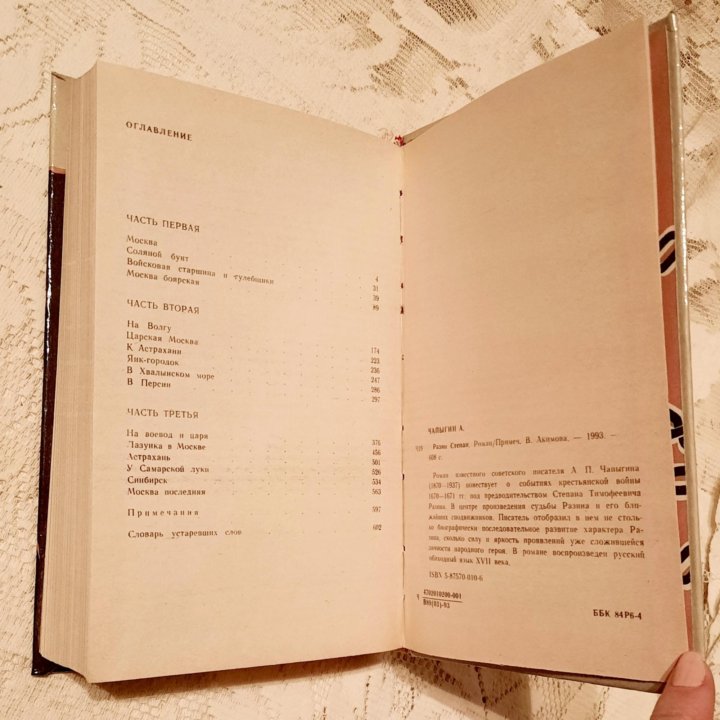 ОГЛАВЛЕНИЕ
ЧАСТЬ ПЕРВАЯ
Москва 4
Соляной бунт 31
Войсковая старшина и гулебщики 39
Москва боярская 89
ЧАСТЬ ВТОРАЯ
На Волгу 174
Царская Москва 223
К Астрахани 236
Яик-городок 247
В Хвалынском море 286
В Персии 297
ЧАСТЬ ТРЕТЬЯ
На воевод и царя 376
Лазунка в Москве 456
Астрахань 501
У Самарской луки 526
Синбирск 534
Москва последняя 563
Примечания 597
Словарь устаревших слов 602
ЧАПЫГИН А.
Разин Степан. Роман/Примеч. В. Акимова. — 1993. —
608 с.
Роман известного советского писателя А. П. Чапыгина
(1870—1937) повествует о событиях крестьянской войны
1670—1671 гг. под предводительством Степана Тимофеевича
Разина. В центре произведения судьбы Разина и его бли-
жайших сподвижников. Писатель отобразил в нем не столь-
ко биографически последовательное развитие характера Ра-
зина, сколько силу и яркость проявлений уже сложившейся
личности народного героя. В романе воспроизведен русский
обиходный язык XVII века.
ISBN 5-87570-010-6
Ч 4702010200-001
В89(03)-93
ББК 84Р6-4